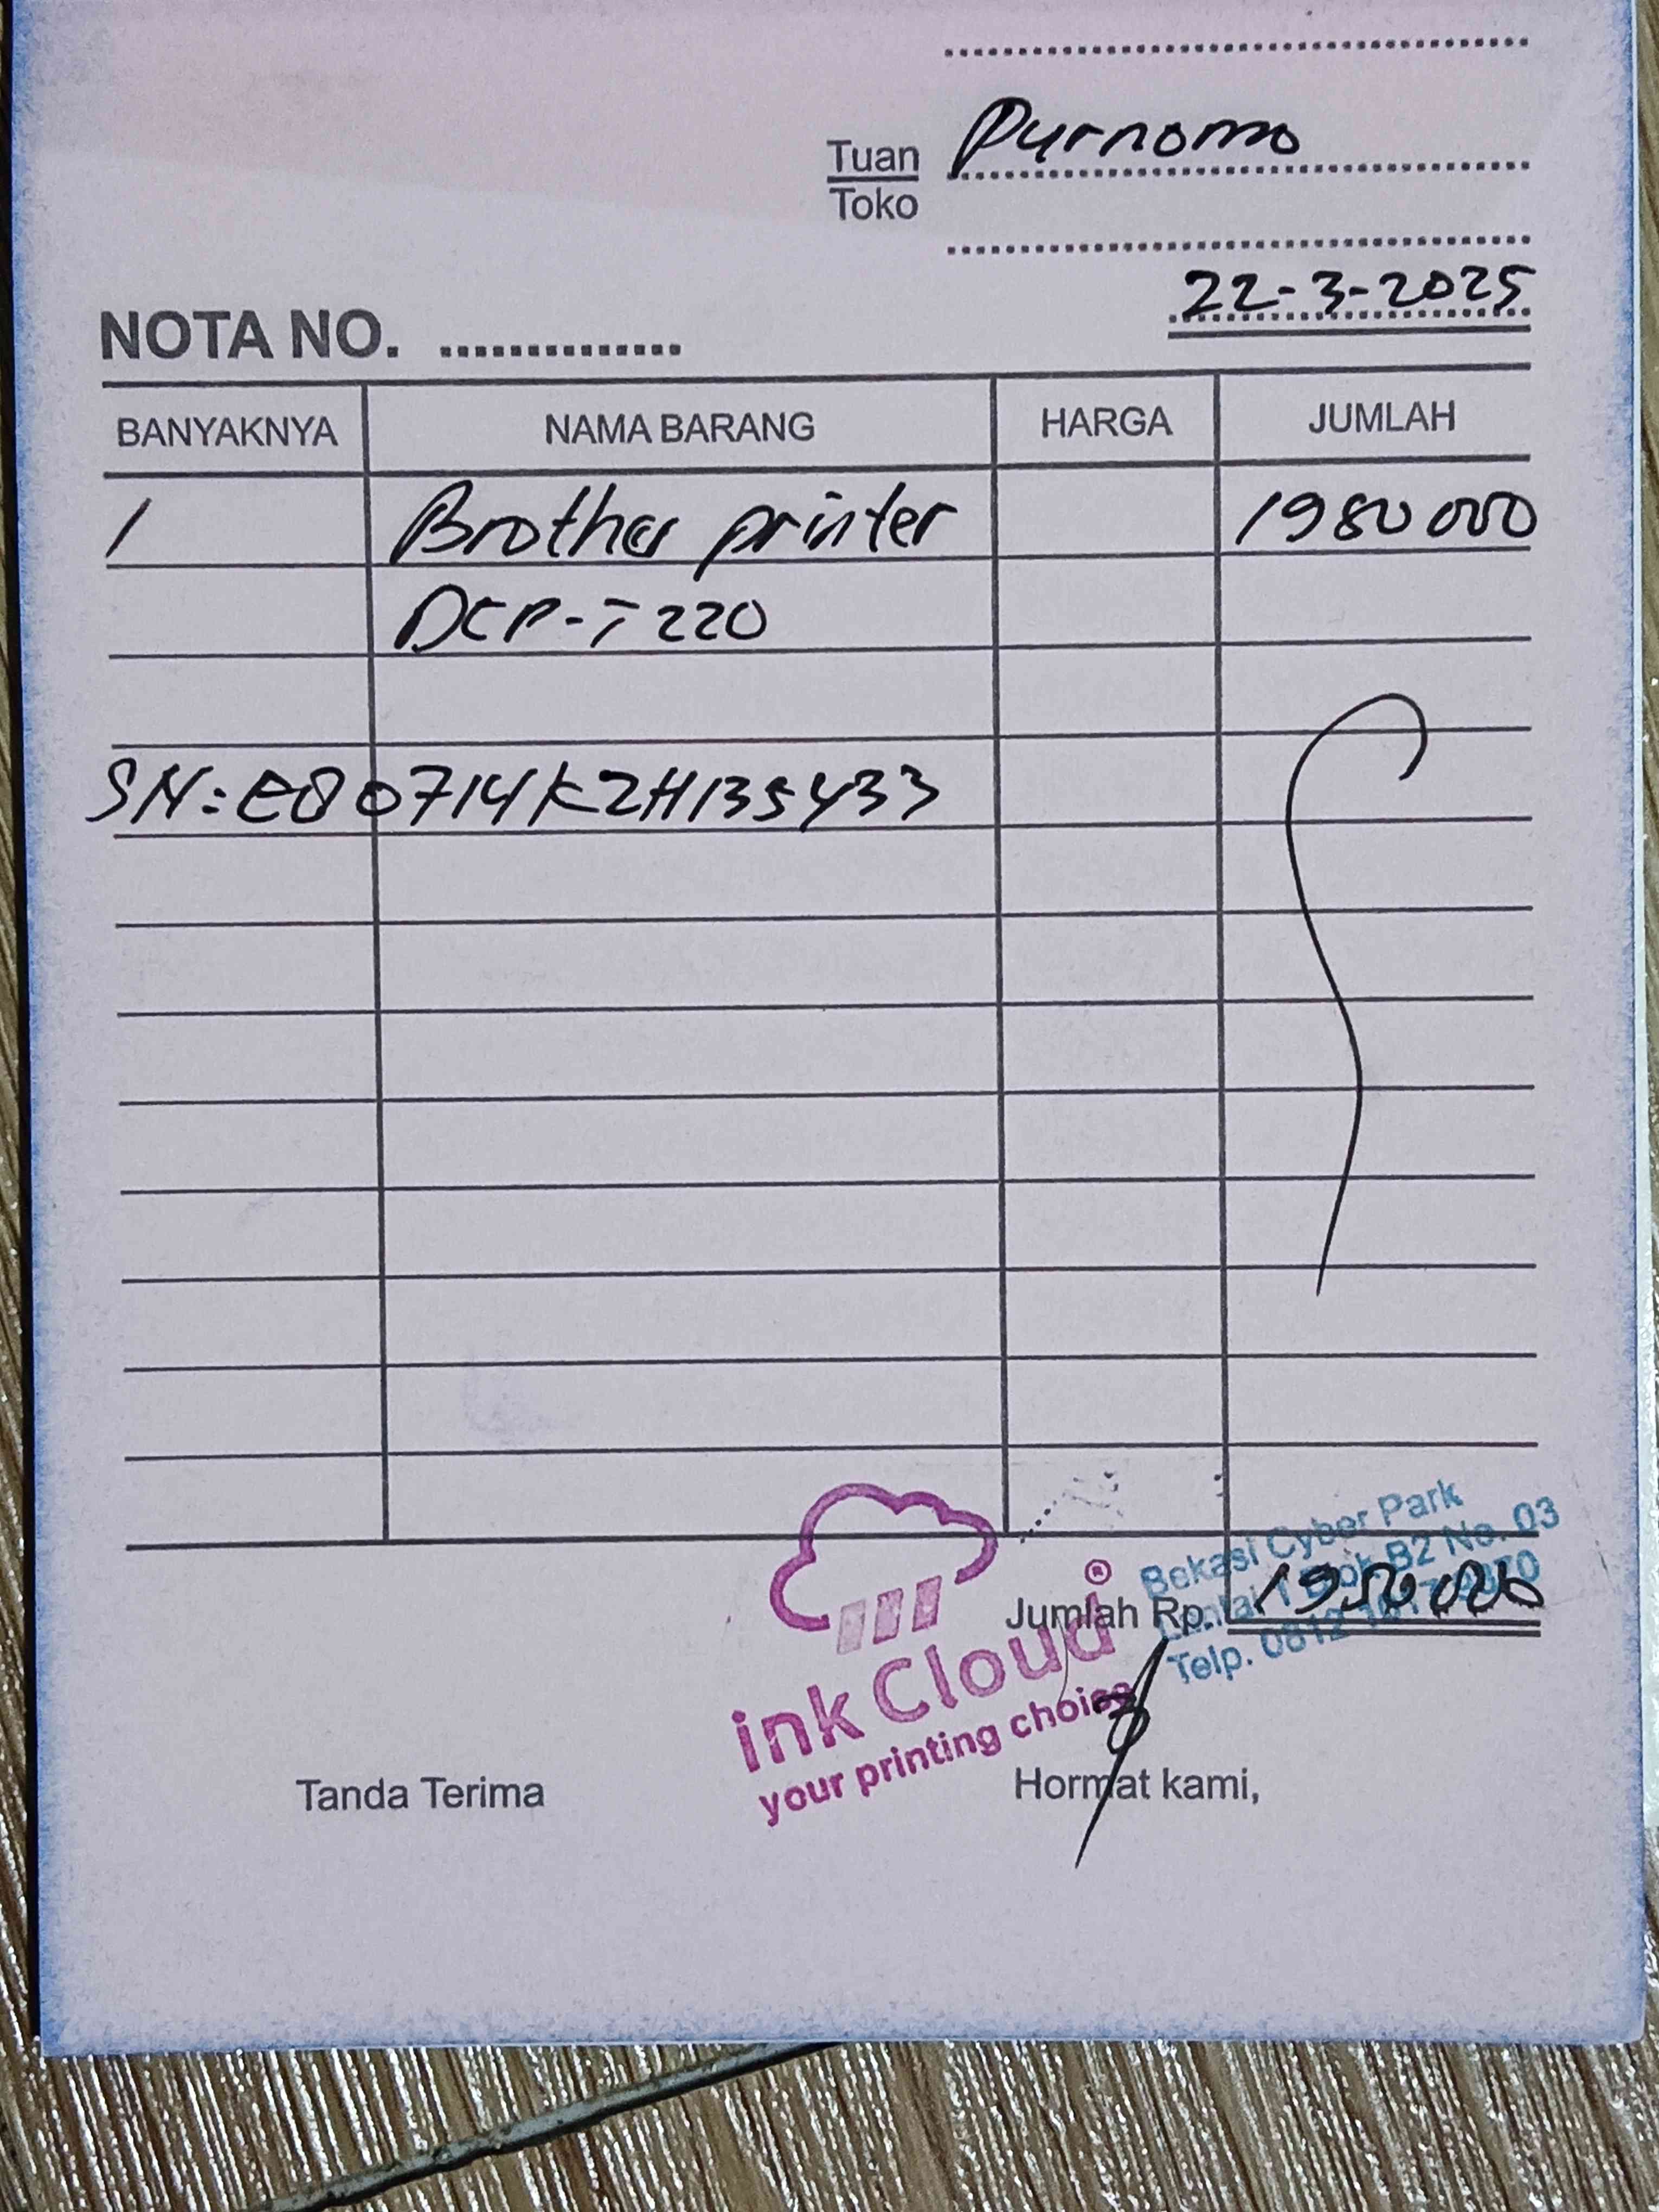 Tuan Purnomo
Toko
22-3-2025
NOTA NO. ..............
BANYAKNYA NAMA BARANG HARGA JUMLAH
1 Brother printer 1980 000
DCP-T220
SN: E80714K2H135433
Bekasi Cyber Park
B2 No. 03
Jumlah Rp.
Telp. 0812
ink Cloud ®
your printing choice
Tanda Terima Hormat kami,